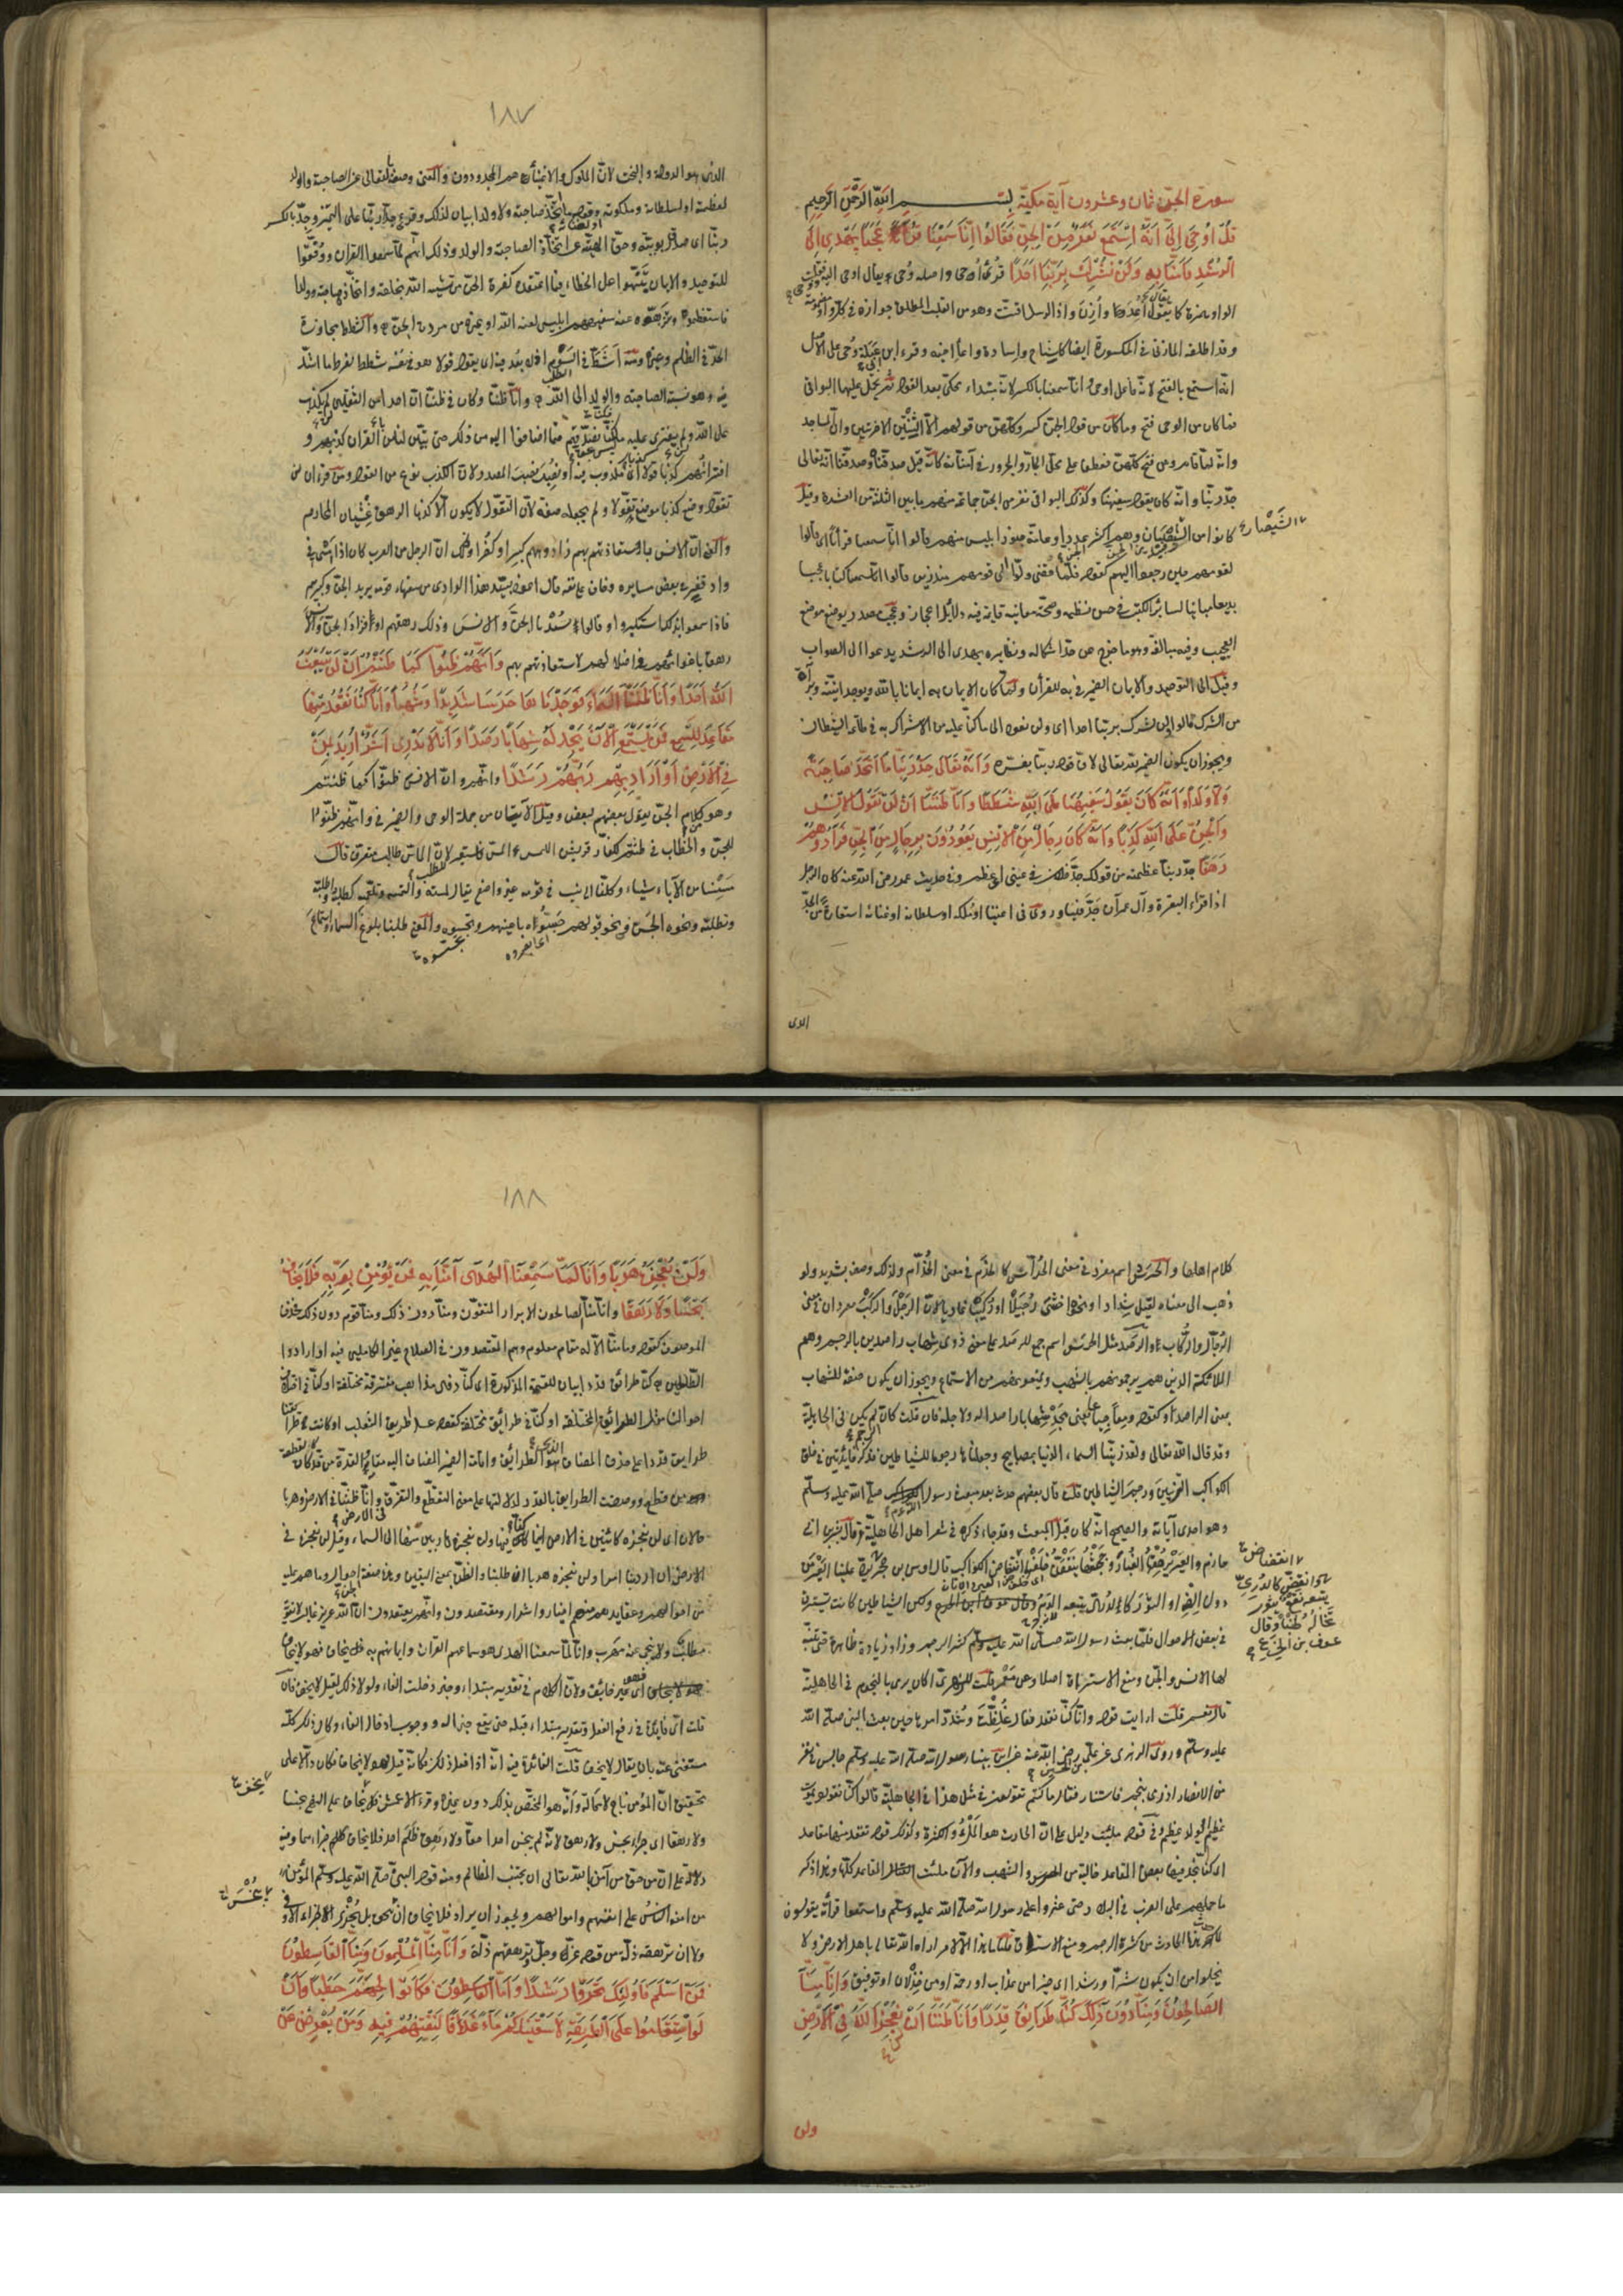 سورة الجنّ ثمان وعشرون آية مكيّة بِسْمِ اللّهِ الرَّحْمنِ الرَّحِيمِ
قُلْ اُوحِيَ اِلَيَّ اَنَّهُ اسْتَمَعَ نَفَرٌ مِنَ الْجِنِّ فَقَالُوا اِنَّا سَمِعْنَا قُرْآنًا عَجَبًا يَهْدِى اِلَى
الرُّشْدِ فَآمَنَّا بِهِ وَلَنْ نُشْرِكَ بِرَبِّنَا اَحَدًا قرئ أُحى واصله وُحى يقال اوحى اليه
الواو همزة كما يقال أُعِدَ وأُزِنَ واذا الرسل اقتت وهو من القلب المطلق جوازه في كل واو مضمومة
وقد اطلقه المازنى في المكسورة ايضا كاشاح واسادة واعاء اخيه وقرء ابن ابى عبلة وُحى على الاصل
انه استمع بالفتح لانه فاعل اوحى وانا سمعنا بالكسر لانه مبتداء محكى بعد القول ثم يحمل عليها البواقى
فما كان من الوحى فتح وما كان من قول الجن كسر وكلهن من قولهم الا الثنتين الاخريين وان المساجد
وانه لما قام ومن فتح كلهن فعطفا على محل الجار والمجرور في آمنا به كانه قيل صدقناه وصدقنا انه تعالى
جدّ ربنا وانه كان يقول سفيهنا وكذلك البواقى نفر من الجن جماعة منهم ما بين الثلثة الى العشرة وقيل
كانوا من الشيصبان وهم اكثر الجن عددا وعامة جنود ابليس منهم فقالوا انا سمعنا قرآنا اى قالوا
لقومهم حين رجعوا اليهم كقوله فلما قضى ولّوا الى قومهم منذرين قالوا انا سمعنا كتابا عجبا
بديعا مباينا لسائر الكتب في حسن نظمه وصحة معانيه قائمة فيه دلائل الاعجاز وعجب مصدر يوضع موضع
العجيب وفيه مبالغة وهو ما خرج عن حد اشكاله ونظايره يهدى الى الرشد يدعوا الى الصواب
وقيل الى التوحيد والايمان والضمير في به للقرآن ولما كان الايمان به ايمانا بالله وبوحدانيته وبرآءة
من الشرك قالوا ولن نشرك بربنا احدا اى ولن نعود الى ما كنا عليه من الاشراك به في طاعة الشيطان
ويجوز ان يكون الضمير لله تعالى لان قوله بربنا يفسره وَاَنَّهُ تَعَالَى جَدُّ رَبِّنَا مَا اتَّخَذَ صَاحِبَةً
وَلَا وَلَدًا وَاَنَّهُ كَانَ يَقُولُ سَفِيهُنَا عَلَى اللّهِ شَطَطًا وَاَنَّا ظَنَنَّا اَنْ لَنْ تَقُولَ الْاِنْسُ
وَالْجِنُّ عَلَى اللّهِ كَذِبًا وَاَنَّهُ كَانَ رِجَالٌ مِنَ الْاِنْسِ يَعُوذُونَ بِرِجَالٍ مِنَ الْجِنِّ فَزَادُوهُمْ
رَهَقًا جدّ ربنا عظمته من قولك جدّ فلان في عينى اى عظم وفي حديث عمر رضى الله عنه كان الرجل
اذا قراء البقرة وآل عمران جدّ فينا وروى في اعيننا او ملكه او سلطانه او غناه استعارة من الجدّ
الذى
١٨٧
الذى هو الدولة والبخت لان الملوك والاغنياء هم المجدودون والمعنى وصفه بالتعالى عن الصاحبة والولد
لعظمته او لسلطانه وملكوته وقوله ما اتخذ صاحبة ولا ولدا بيان لذلك وقرئ جدا ربنا على التمييز وجدّ بالكسر
ربنا اى صدق ربوبيته وحق الهيته عن اتخاذ الصاحبة والولد وذلك انهم لما سمعوا القرآن ووفقوا
للتوحيد والايمان تنبهوا على الخطاء فيما اعتقده كفرة الجن من تشبيه الله بخلقه واتخاذه صاحبة وولدا
فاستعظموه ونزهوه عنه سفيههم ابليس لعنه الله او غيره من مردة الجن والشطط مجاوزة
الحد في الظلم وغيره ومنه اشط في السوم اذا ابعد فيه اى يقول قولا هو في نفسه شطط لفرط ما اشط
فيه وهو نسبة الصاحبة والولد الى الله وانا ظننا وكان في ظننا ان احدا من الثقلين لن يكذب
على الله ولن يفترى عليه ما ليس بحق فكنا نصدقهم فيما اضافوا اليه من ذلك حتى تبين لنا من القرآن كذبهم و
افتراؤهم كذبا قولا كذبا اى مكذوبا فيه او نصب نصب المصدر لان الكذب نوع من القول ومن قرء ان لن
تقول وضع كذبا موضع تقولا ولم يجعله صفة لان التقول لا يكون الا كذبا الرهق غشيان المحارم
والمعنى ان الانس باستعاذتهم بهم زادوهم كبرا وكفرا وذلك ان الرجل من العرب كان اذا امسى في
واد قفر في بعض مسايره وخاف على نفسه قال اعوذ بسيد هذا الوادى من سفهاء قومه يريد الجن وكبيرهم
فاذا سمعوا بذلك استكبروا وقالوا سدنا الجن والانس وذلك رهقهم او فزاد الجن والانس
رهقا باغوائهم واضلالهم لاستعاذتهم بهم وَاَنَّهُمْ ظَنُّوا كَمَا ظَنَنْتُمْ اَنْ لَنْ يَبْعَثَ
اللّهُ اَحَدًا وَاَنَّا لَمَسْنَا السَّمَاءَ فَوَجَدْنَاهَا مُلِئَتْ حَرَسًا شَدِيدًا وَشُهُبًا وَاَنَّا كُنَّا نَقْعُدُ مِنْهَا
مَقَاعِدَ لِلسَّمْعِ فَمَنْ يَسْتَمِعِ الْآنَ يَجِدْ لَهُ شِهَابًا رَصَدًا وَاَنَّا لَا نَدْرِى اَشَرٌّ اُرِيدَ بِمَنْ
فِي الْاَرْضِ اَمْ اَرَادَ بِهِمْ رَبُّهُمْ رَشَدًا وانهم وان الانس ظنوا كما ظننتم
وهو من كلام الجن يقول بعضهم لبعض وقيل الآيتان من جملة الوحى والضمير في وانهم ظنوا
للجن والخطاب في ظننتم لكفار قريش اللمس المس فاستعير للطلب لان الماس طالب متعرف قال
مسسنا من الآباء شيئا وكلنا الى نسب في قومه غير واضع يقال لمسه والتمسه وتلمسه كطلبه واطلبه
وتطلبه ونحوه الجس وقولهم جسوه باعينهم وتجسسوه والمعنى طلبنا بلوغ السماء واستماع
كلام اهلها والحرس اسم مفرد في معنى الحراس كالخدم في معنى الخدام ولذلك وصف بشديد ولو
ذهب الى معناه لقيل شدادا ونحوها اخشى رجيلا او ركيبا غاديا لان الرجل والركب مفردان في معنى
الرجال والركاب والرصد مثل الحرس اسم جمع للراصد على معنى ذوى شهاب راصدين بالرجم وهم
الملائكة الذين هم يرجمونهم بالشهب ويمنعونهم من الاستماع ويجوز ان يكون صفة للشهاب
بمعنى الراصد او كقوله ومعا جياعا يعنى يجد شهابا راصدا له ولاجله فان قلت كان الرجم لم يكن في الجاهلية
وقد قال الله تعالى ولقد زينا السماء الدنيا بمصابيح وجعلناها رجوما للشياطين فذكر فائدتين في خلق
الكواكب التزيين ورجم الشياطين قلت قال بعضهم حدث بعد مبعث رسول الله صلى الله عليه وسلم
وهو احدى آياته والصحيح انه كان قبل المبعث وقد جاء ذكره في شعر اهل الجاهلية قال بشر بن ابى
خازم والعير يرهقها الغبار وجحشها ينقض خلفهما انقضاض الكوكب قال اوس بن حجر
وانقض كالدرى يتبعه نقع يثور تخاله طنبا وقال عوف بن الخرع
في بعض الاحوال فلما بعث رسول الله صلى الله عليه وسلم كثر الرجم وزاد زيادة ظاهرة حتى تنبه
لها الانس والجن ومنع الاستراق اصلا وعن معمر قلت للزهرى اكان يرمى بالنجوم في الجاهلية
قال نعم قلت ارايت قوله وانا كنا نقعد فقال غلظت وشدد امرها حين بعث النبى صلى الله
عليه وسلم وروى الزهرى عن على بن الحسين عن ابن عباس رضى الله عنه بينا رسول الله صلى الله عليه وسلم جالس في نفر
من الانصار اذ رمى بنجم فاستنار فقال ما كنتم تقولون في مثل هذا في الجاهلية قالوا كنا نقول يموت
عظيم او يولد عظيم وفي قوله ملئت دليل على ان الحادث هو الملء والكثرة وكذلك قوله نقعد منها مقاعد
اى كنا نجد فيها بعض المقاعد خالية من الحرس والشهب والآن ملئت المقاعد كلها وهذا ذكر
ما حملهم على الضرب في البلاد حتى عثروا على رسول الله صلى الله عليه وسلم واستمعوا قرآنه يقولون
لما حدث هذا الحادث من كثرة الرجم ومنع الاستراق قلنا ما هذا الا لامر اراده الله تعالى باهل الارض ولا
يخلوا من ان يكون شرا او رشدا اى خيرا من عذاب او رحمة او من خذلان او توفيق وَاَنَّا مِنَّا
الصَّالِحُونَ وَمِنَّا دُونَ ذلِكَ كُنَّا طَرَائِقَ قِدَدًا وَاَنَّا ظَنَنَّا اَنْ لَنْ نُعْجِزَ اللّهَ فِي الْاَرْضِ
ولن
١٨٨
وَلَنْ نُعْجِزَهُ هَرَبًا وَاَنَّا لَمَّا سَمِعْنَا الْهُدَى آمَنَّا بِهِ فَمَنْ يُؤْمِنْ بِرَبِّهِ فَلَا يَخَافُ
بَخْسًا وَلَا رَهَقًا وانا منا الصالحون الابرار المتقون ومنا دون ذلك ومنا قوم دون ذلك فحذف
الموصوف كقوله وما منا الا له مقام معلوم وهم المقتصدون في الصلاح غير الكاملين فيه او ارادوا
الطالحين كنا طرائق قددا بيان للقسمة المذكورة اى كنا ذوى مذاهب مفترقة مختلفة او كنا في اختلاف
احوالنا مثل الطرائق المختلفة او كنا في طرائق مختلفة كقوله عسل الطريق الثعلب او كانت طرائقنا
طرايق قددا على حذف المضاف الذى هو الطرائق واقامة الضمير المضاف اليه مقامه والقدة من قدّ كالقطعة
من قطع ووصفت الطرايق بالقدد لدلالتها على معنى التقطع والتفرق وانا ظننا في الارض وهربا
حالان اى لن نعجزه كائنين في الارض اينما كنا فيها ولن نعجزه هاربين منها الى السماء وقيل لن نعجزه في
الارض ان اراد بنا امرا ولن نعجزه هربا ان طلبنا والظن بمعنى اليقين وهذه صفة احوال الجن وما هم عليه
من احوالهم وعقايدهم منهم اخيار واشرار ومقتصدون وانهم يعتقدون ان الله عزيز غالب لا يفوته
مطلب ولا ينجى عنه مهرب وانا لما سمعنا الهدى هو سماعهم القرآن وايمانهم به فلا يخاف فهو لا يخاف
اى فهو غير خائف ولان الكلام في تقدير مبتداء وخبر دخلت الفاء ولولا ذلك لقيل لا يخف فان
قلت اى فائدة في رفع الفعل وتقدير مبتداء قبله حتى يقع خبرا له ووجوب ادخال الفاء وكان ذلك كله
مستغنى عنه بان يقال لا يخف قلت الفائدة فيه انه اذا فعل ذلك فكانه قيل فهو لا يخاف فكان دالا على
تحقيق ان المؤمن ناج لا محالة وانه هو المختص بذلك دون غيره وقرء الاعمش فلا يخف على النهى بخسا
ولا رهقا اى جزاء بخس ولا رهق لانه لم يبخس احدا حقا ولا رهق ظلم احد فلا يخاف جزاءهما وفيه
دلالة على ان من حق من آمن بالله تعالى ان يجتنب المظالم ومنه قول النبى صلى الله عليه وسلم المؤمن
من امنه الناس على انفسهم واموالهم ويجوز ان يراد فلا يخاف ان يبخس بل يجزى الجزاء الاوفى
ولا ان ترهقه ذلة من قوله عز وجل وترهقهم ذلة وَاَنَّا مِنَّا الْمُسْلِمُونَ وَمِنَّا الْقَاسِطُونَ
فَمَنْ اَسْلَمَ فَاُولئِكَ تَحَرَّوْا رَشَدًا وَاَمَّا الْقَاسِطُونَ فَكَانُوا لِجَهَنَّمَ حَطَبًا وَاَنْ
لَوِ اسْتَقَامُوا عَلَى الطَّرِيقَةِ لَاَسْقَيْنَاهُمْ مَاءً غَدَقًا لِنَفْتِنَهُمْ فِيهِ وَمَنْ يُعْرِضْ عَنْ